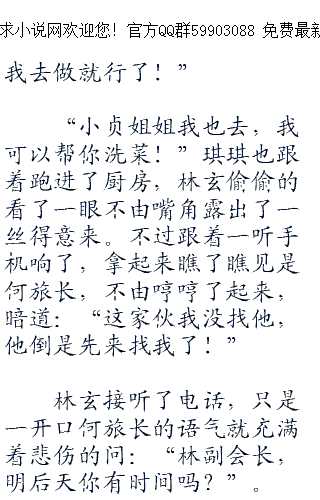 求小说网欢迎您！官方QQ群59903088 免费最新
我去做就行了！”
“小贞姐姐我也去，我
可以帮你洗菜！”琪琪也跟
着跑进了厨房，林玄偷偷的
看了一眼不由嘴角露出了一
丝得意来。不过跟着一听手
机响了，拿起来瞧了瞧见是
何旅长，不由哼哼了起来，
暗道：“这家伙我没找他，
他倒是先来找我了！”
林玄接听了电话，只是
一开口何旅长的语气就充满
着悲伤的问：“林副会长，
明后天你有时间吗？”。